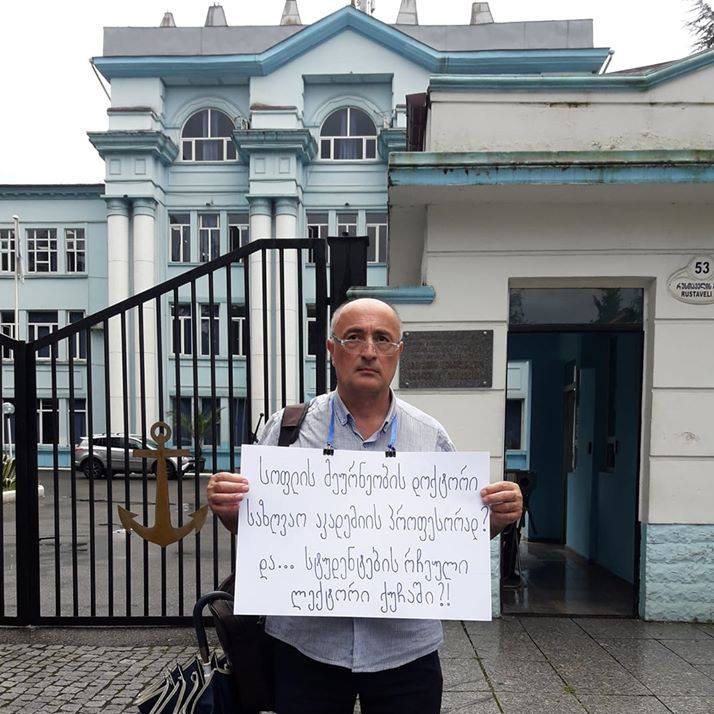 53
რუსთაველის
RUSTAVELI
სოფლის მეურნეობის დოქტორი
საზღვაო აკადემიის პროფესორად?
და... სტუდენტების რჩეული
ლექტორი ქუჩაში?!